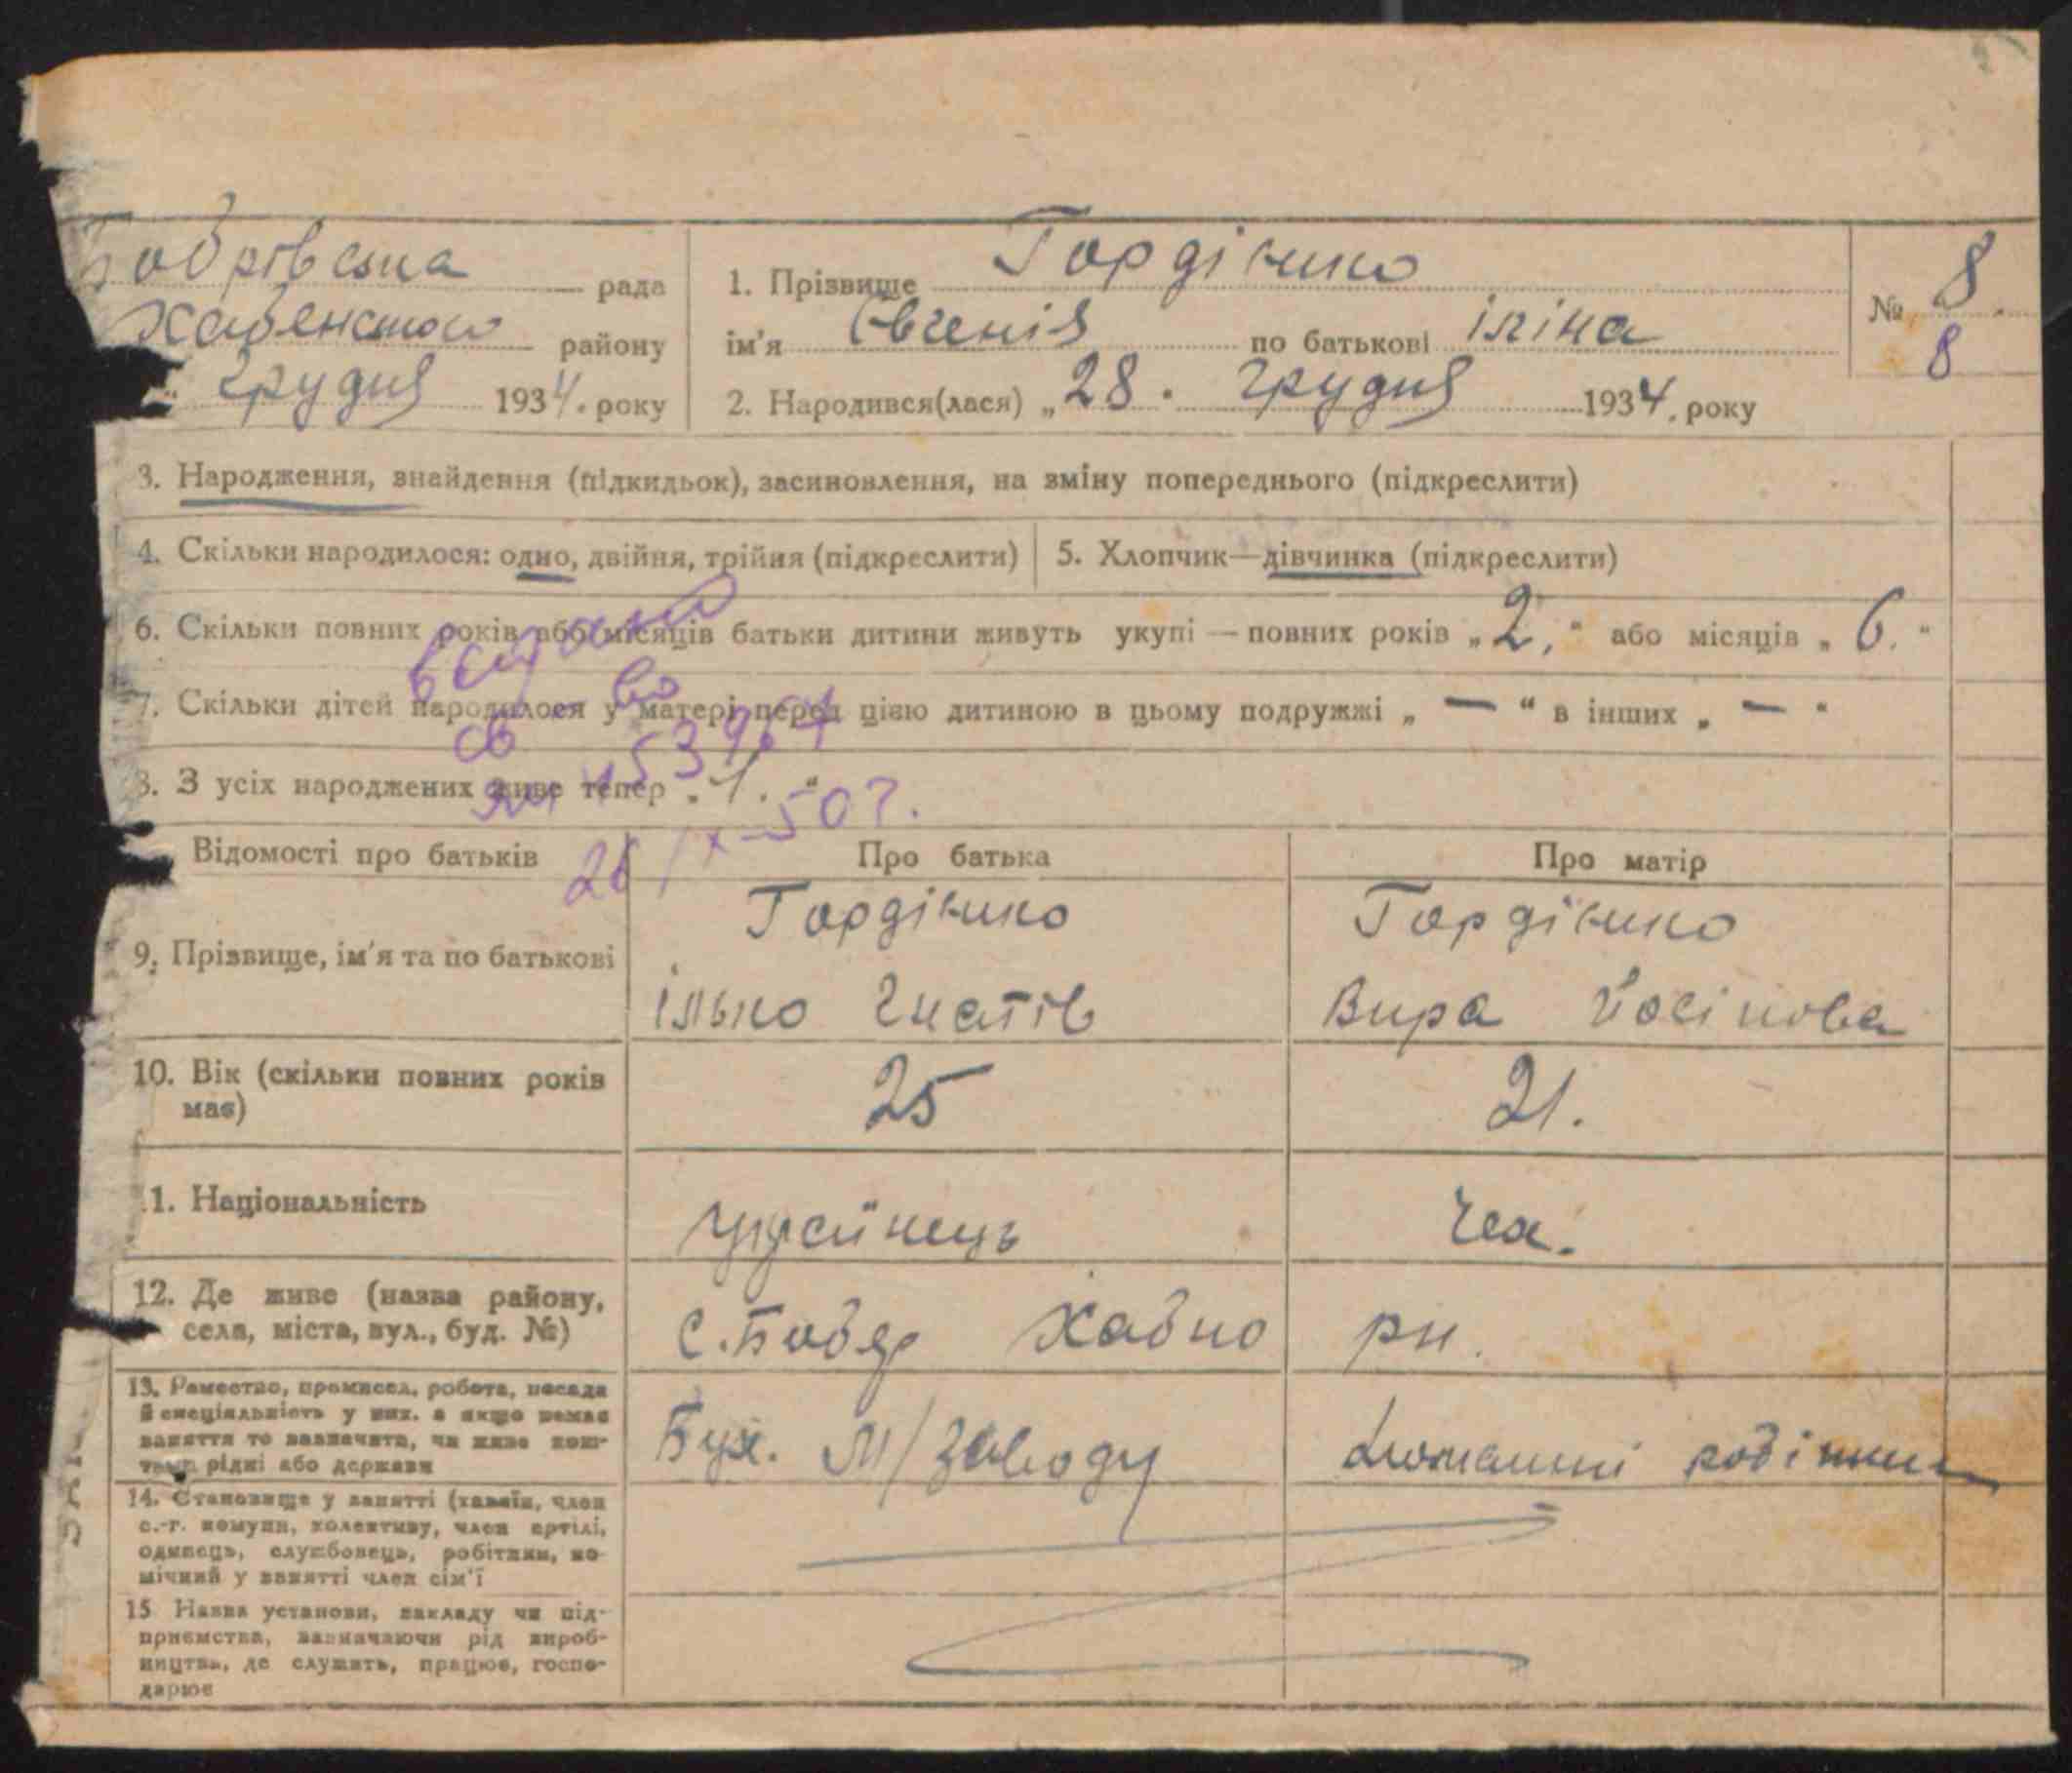 Бобрівська рада
Хабенського району
грудня 1934. року
1. Прізвище Гордієнко
ім'я Євгенія по батькові Іліна
2. Народився(лася) „28. грудня 1934. року
№ 8.
8
3. Народження, знайдення (підкидьок), засиновлення, на зміну попереднього (підкреслити)
4. Скільки народилося: одно, двійня, трійня (підкреслити) 5. Хлопчик—дівчинка (підкреслити)
6. Скільки повних років або місяців батьки дитини живуть укупі — повних років „2.“ або місяців „6.“
7. Скільки дітей народилося у матері перед цією дитиною в цьому подружжі „—“ в інших „—“
8. З усіх народжених живе тепер „1.“
св во
26/ІХ-50 г.
Відомості про батьків Про батька Про матір
9. Прізвище, ім'я та по батькові
Гордієнко Гордієнко
Ілько Гнатів Вира Йосіпова
10. Вік (скільки повних років має) 25 21.
11. Національність українець чех.
12. Де живе (назва району, села, міста, вул., буд. №) с. Бобер Хабно рн.
13. Ремество, промисел, робота, посада
й спеціяльність у них, а якщо немає
заняття то зазначити, чи живе кош-
тами рідні або держави
Бух. М/Заводу Домашні робітниц
14. Становище у занятті (хазяїн, член
с.-г. комуни, колективу, член артілі,
одинець, службовець, робітник, по-
мічний у занятті член сім'ї
15 Назва установи, закладу чи під-
приємства, зазначаючи рід вироб-
ництва, де служить, працює, госпо-
дарює